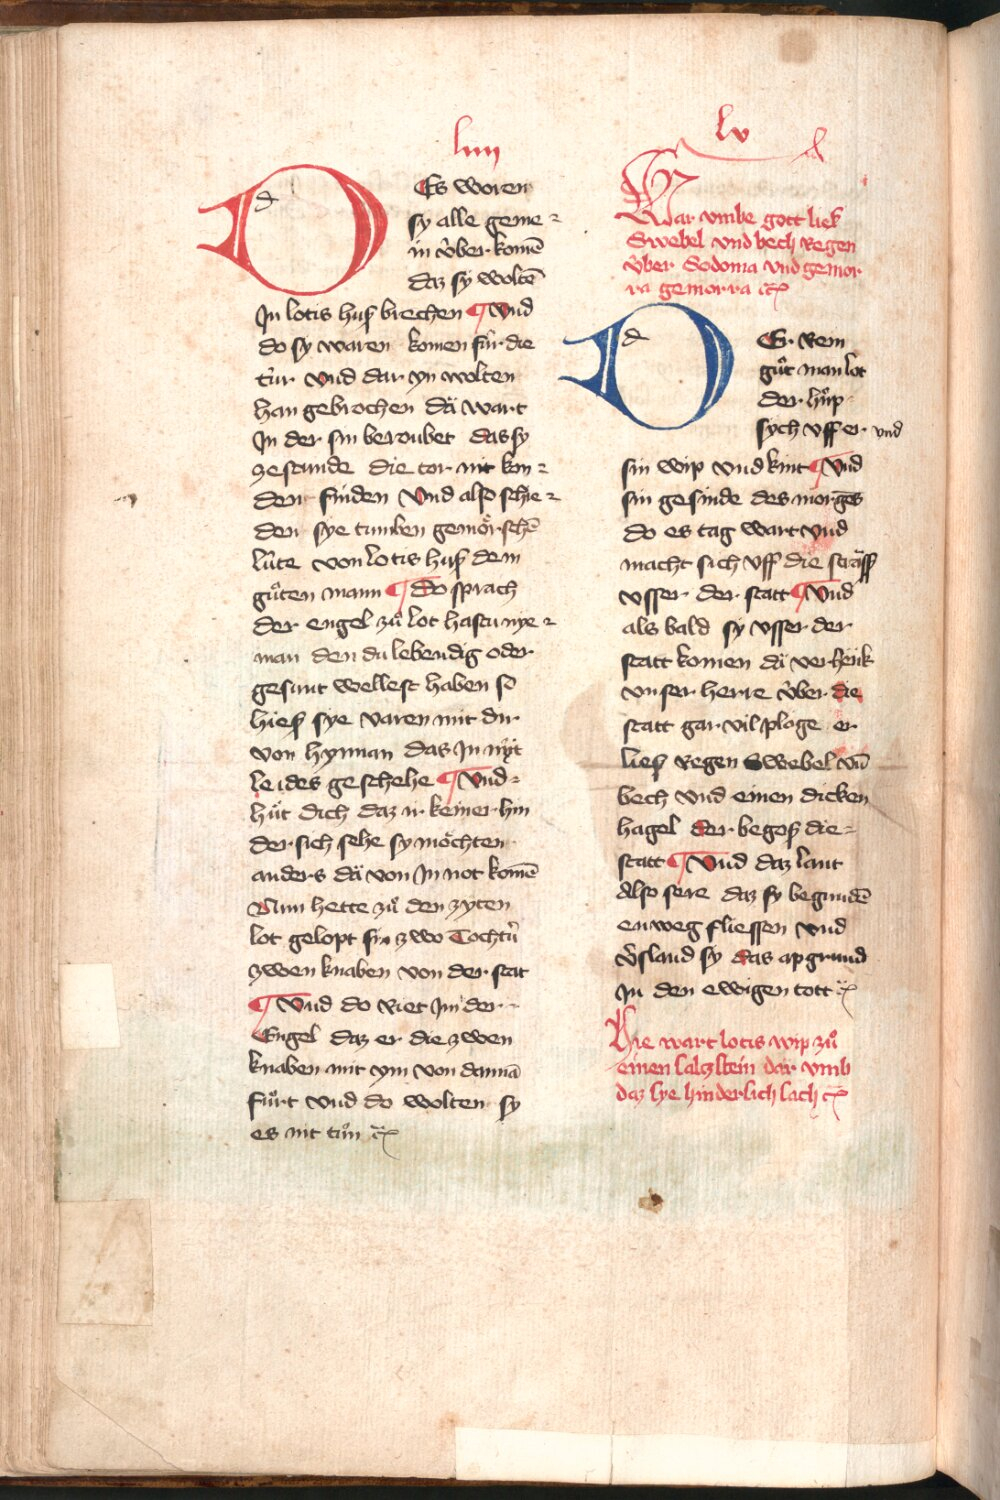 liiii
DEs woren
sy alle geme-
in v̊ber komē
daz sy woltē
In lotis huß brechen ¶ Vnd
do sy waren komen fúr die
túr vnd dar yn wolten
han gebrochen dä wart
In der sin beroubet das sy
zestunde die tor nit kon-
den finden Vnd also schie-
den sye tumben gemörschē
lúte von lotis huß dem
gůten mann ¶ do sprach
der engel zů lot hastu nye-
man den du lebendig oder
gesunt wellest haben so
hieß sye varen mit dir
von hynnan das In nyt
leides geschehe ¶ Vnd
hüt dich daz ir keiner hin
der sich sehe sy möchten
anders dä von In not komē
Nun hette zů den zyten
lot gelopt sin zwo Tochtr̄
zwen knaben von der stat
¶ Vnd do riet Im der
Engel daz er die zwen
knaben mit ym von dannā
fůrt vnd do wolten sy
es nit tůn ꝛc
lv
War vmbe gott ließ
Swebel vnd bech Regen
v̊ber Sodoma vnd gemor
ra gemorra ꝛc
DEr Rein
gůt man lot
der hůp
sych vff er vnd
sin wip vnd kint ¶ Vnd
sin gesinde des morgēs
do es tag wart Vnd
macht sich vff die sträss
vsser der statt ¶ Vnd
als bald sy vsser der
statt komen dä verhenk
vnser herre v̊ber die
statt gar vil ploge er
ließ regen Swebel vn̄
bech vnd einen dicken
hagel der begoß die
statt ¶ Vnd daz lant
Also sere daz sy begundē
enweg fliessen vnd
v̊sland sy das apgrund
In den ewigen tott ꝛc
Hie wart lotis wip zů
einen salczstein dar vmb
daz sye hinderlich sach ꝛc